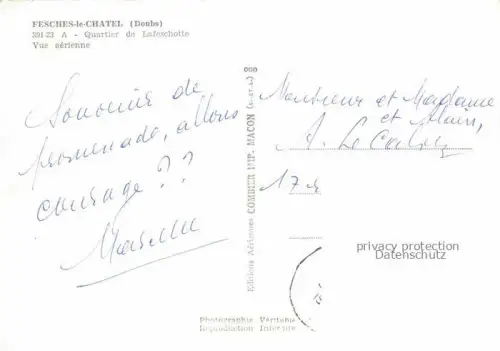 FESCHES-le-CHATEL (Doubs)
391-23 A - Quartier de Lafeschotte
Vue aérienne
Souvenir de
promenade, allons
courage ??
Marcelle
Editions Aériennes COMBIER IMP. MACON (S.-et-L.)
Monsieur et Madame
et Alain,
A. Le
17
privacy protection
Datenschutz
Photographie Véritable
Reproduction Interdite